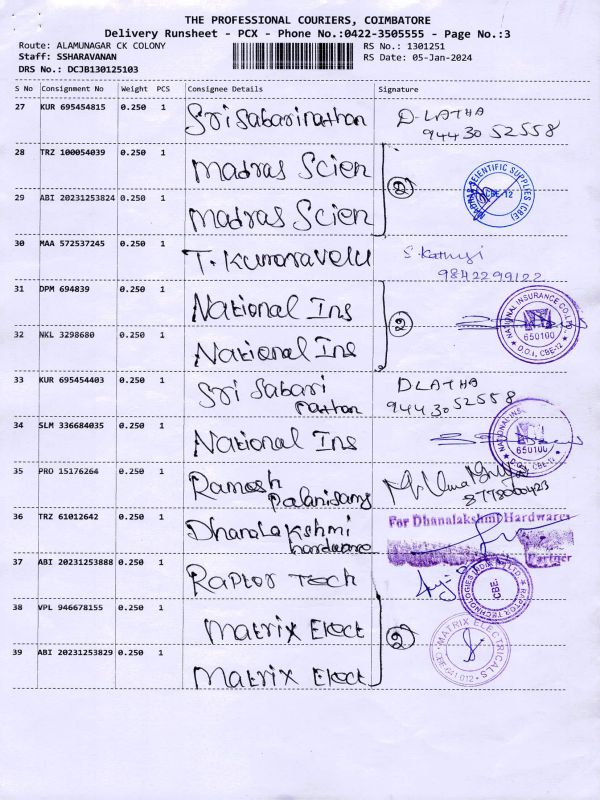 THE PROFESSIONAL COURIERS, COIMBATORE
Delivery Runsheet - PCX - Phone No.:0422-3505555 - Page No.:3
Route: ALAMUNAGAR CK COLONY
RS No.: 1301251
Staff: SSHARAVANAN
RS Date: 05-Jan-2024
DRS No.: DCJB130125103
S No Consignment No Weight PCS Consignee Details Signature
27 KUR 695454815 0.250 1 Sri Sabarinathan D-LATHA
94430 52558
28 TRZ 100054039 0.250 1 Madras Scien
MADRAS SCIENTIFIC SUPPLIES (CBE)
CBE-12
②
29 ABI 20231253824 0.250 1 Madras Scien
30 MAA 572537245 0.250 1 T. Kumaravelu S. Kathugi
9842299122
31 DPM 694839 0.250 1 National Ins
NATIONAL INSURANCE CO. LTD
650100
D.O.I, CBE-12
32 NKL 3298680 0.250 1 National Ins
33 KUR 695454403 0.250 1 Sri Sabari
nathan
DLATHA
94430 52558
34 SLM 336684035 0.250 1 National Ins
NATIONAL INS
650100
D.O.I, CBE-12
35 PRO 15176264 0.250 1 Ramesh
Palanisamy
36 TRZ 61012642 0.250 1 Dhanalakshmi
hardware
For Dhanalakshmi Hardwares
Partner
37 ABI 20231253888 0.250 1 Raptor Tech
RAPTOR TECHNOLOGIES INDIA (P) LTD
CBE.
38 VPL 946678155 0.250 1 Matrix Elect
②
MATRIX ELECTRICALS
CBE-641 012
39 ABI 20231253829 0.250 1 Matrix Elect